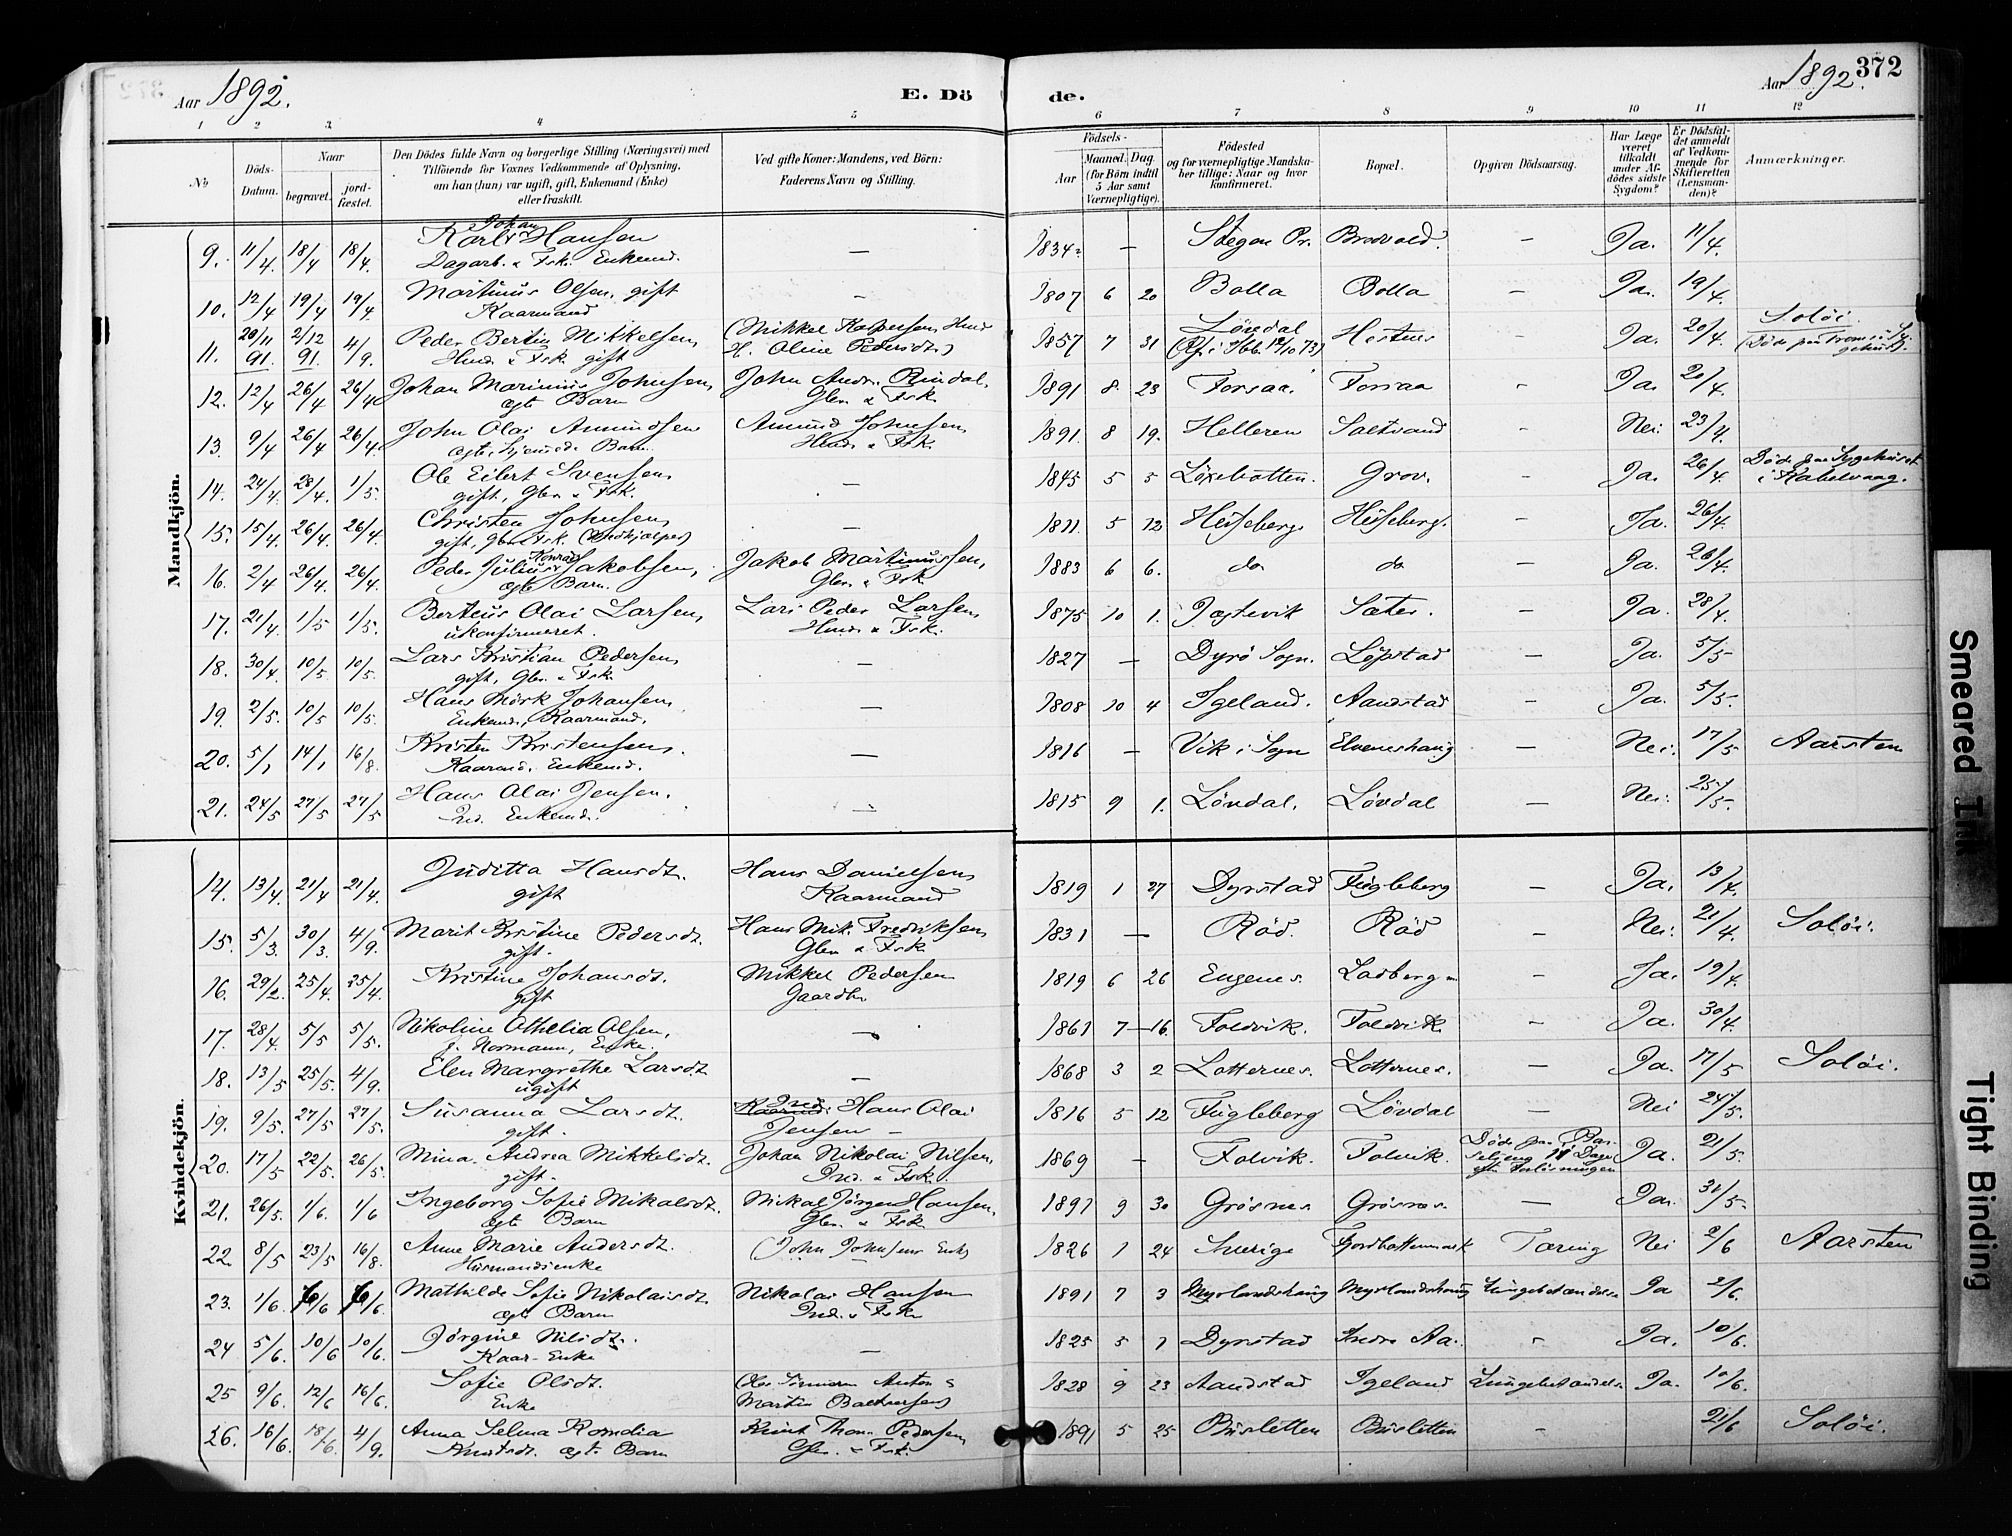 Aar 1892. E. Dö de. Aar 1892. 372
1 2 3. 4 5 6 7 8 9 10 11 12
№ Döds-Datum. Naar begravet. jord-fæstet. Den Dödes fulde Navn og borgerlige Stilling (Næringsvei) med Tilföiende for Voxnes Vedkommende af Oplysning, om han (hun) var ugift, gift, Enkemand (Enke) eller fraskilt. Ved gifte Koner: Mandens, ved Börn: Faderens Navn og Stilling. Födsels- Aar Maaned. Dag. (for Börn indtil 5 Aar samt Værnepligtige). Födested og for værnepligtige Mandskaber tillige: Naar og hvor konfirmeret. Bopæl. Opgiven Dödsaarsag. Har Læge været tilkaldt under Afdödes sidste Sygdom? Er Dödsfaldet anmeldt af Vedkommende for Skifteretten (Lensmanden)? Anmærkninger.
Mandkjön.
9. 11/4. 18/4 18/4. Karl Johan Hansen — 1834 — Stegen Pr. — Ja. 11/4.
Dagarb. & Fsk. Enkemd.
10. 12/4 19/4 19/4. Martinus Olsen, gift — 1807 6 20 Bolla Bolla — Ja. 19/4.
Kaarmand
11. 20/11 91. 2/12 91. 4/9. Peder Bertin Mikkelsen, (Mikkel Kaspersen, Husd 1857 7 31 Lövdal Hestnes — Ja. 20/4. Soløi
Husd. & Fsk. gift H. Oline Pedersdt.)
12. 12/4 26/4 26/4 Johan Marinius Johnsen, John Andr. Rindal, 1891 8 23 Forsaa. Forsaa - Ja. 20/4.
ægte Barn Gbr. & Fsk.
13. 9/4 26/4 26/4. John Olai Amundsen Amund Johnsen, 1891. 8 19. Helleren Saltvand - Nei. 23/4.
ægte, Barn Husd. & Fsk.
14. 24/4. 28/4. 1/5. Ole Eilert Svensen, — 1845 5 5 Grov. - Ja. 26/4. Döde paa Sygehuset
gift, Gbr. & Fsk. i Kabelvaag.
15. 15/4. 26/4. 26/4. Christen Johnsen, — 1811 5 12 - Ja. 26/4.
gift, Gbr. & Fsk.
16. 2/4 26/4. 26/4. Peder Julius Konrad Jakobsen, Jakob Martinussen, 1883 6 6. do do — Ja. 26/4.
ægte Barn. Gbr. & Fsk
17. 21/4. 1/5 1/5. Berteus Olai Larsen, Lars Peder Larsen, 1875 10 1. Sæter. — Ja. 28/4.
ukonfirmeret. Husd. & Fsk.
18. 30/4. 10/5 10/5. Lars Kristian Pedersen, — 1827 — Dyrö Sogn. Löpstad — Ja. 5/5
gift, Gbr. & Fsk.
19. 2/5. 10/5 10/5. Hans Mörk Johansen, — 1808 10 4 Igeland. Aandstad — Ja. 5/5.
Enkemd., Kaarmand,
20. 5/1 14/1 16/8. Kristen Kristensen, — 1816 — Vik i Sogn Elveneshaug — Nei. 17/5 Aarsten
Kaarmd. Enkemd.
21. 24/5 27/5 27/5 Hans Olai Jensen. — 1815 9 1. Lövdal. Lövdal — Nei. 25/5.
Ind. Enkemd.
Kvindekjön.
14. 13/4. 21/4 21/4. Juditta Hansdt. Hans Danielsen, 1819 1 27 Dyrstad Fugleberg — Ja. 13/4.
gift Kaarmand
15. 5/3. 30/3. 4/9. Marit Kristine Pedersdt. Hans Mik. Fredriksen, 1831 — Röd. Röd — Nei. 21/4. Soløi.
gift. Gbr. & Fsk
16. 29/2. 25/4. 25/4. Kristine Johansdt. Mikkel Pedersen 1819 6 26 Eugenes. — Ja. 19/4.
gift Gaardbr.
17. 28/4. 5/5 5/5. Nikoline Othelia Olsen, — 1861 7 16. Foldvik. Foldvik. — Ja. 30/4.
f. Normann, Enke.
18. 13/5 25/5. 4/9. Elen Margrethe Larsdt. — 1868 3 2 Lotternes. Lotternes. — Ja. 17/5 Soløi.
ugift
19. 9/5. 27/5 27/5. Susanna Larsdt. Ind. Hans Olai 1816 5 12 Fugleberg Lövdal — Nei 24/5.
gift. Jensen —
20. 17/5 22/5 26/5. Mina Andrea Mikkelsdt. Johan Nikolai Nilsen, 1869 — Folvik. Folvik. Döde paa Barselseng 11 Dage efter Forlösningen Ja. 21/5.
gift. Ind. & Fsk.
21. 26/5. 1/6. 1/6 Ingeborg Sofie Mikalsdt. Mikal Jörgen Hansen, 1891 9 30 Grösnes Grösnes. — Ja. 31/5.
ægte Barn Gbr. & Fsk
22. 8/5 23/5 16/8. Anne Marie Andersdt. (John Johnsens Enke) 1826 1 24 Sverige Fjordbottenmark Tæring Nei 2/6 Aarsten
Husmandsenke
23. 1/6. 7/6 7/6. Mathilde Sofie Nikolaisdt. Nikolai Hansen 1891 7 3 Myrlandshaug Myrlandshaug Lungebetændelse Ja 2/6.
ægte Barn Ind. & Fsk
24 5/6. 10/6 10/6. Jörgine Nilsdt. — 1825 5 7 Dyrstad Indre Aa. - Ja. 10/6.
Kaar-Enke
25 9/6. 12/6 16/6. Sofie Olsdt. 1828 9 23 Aandstad Igeland Lungebetændelse Ja. 10/6.
Enke Martin
26. 16/6. 18/6. 4/9. Anna Selma Kornelia Knut Thom. Pedersen, 1891 5 25 Busletten Busletten - 21/6 Soløi.
Knutsdt. ægte Barn Gbr. & Fsk.
Smeared Ink
Tight Binding